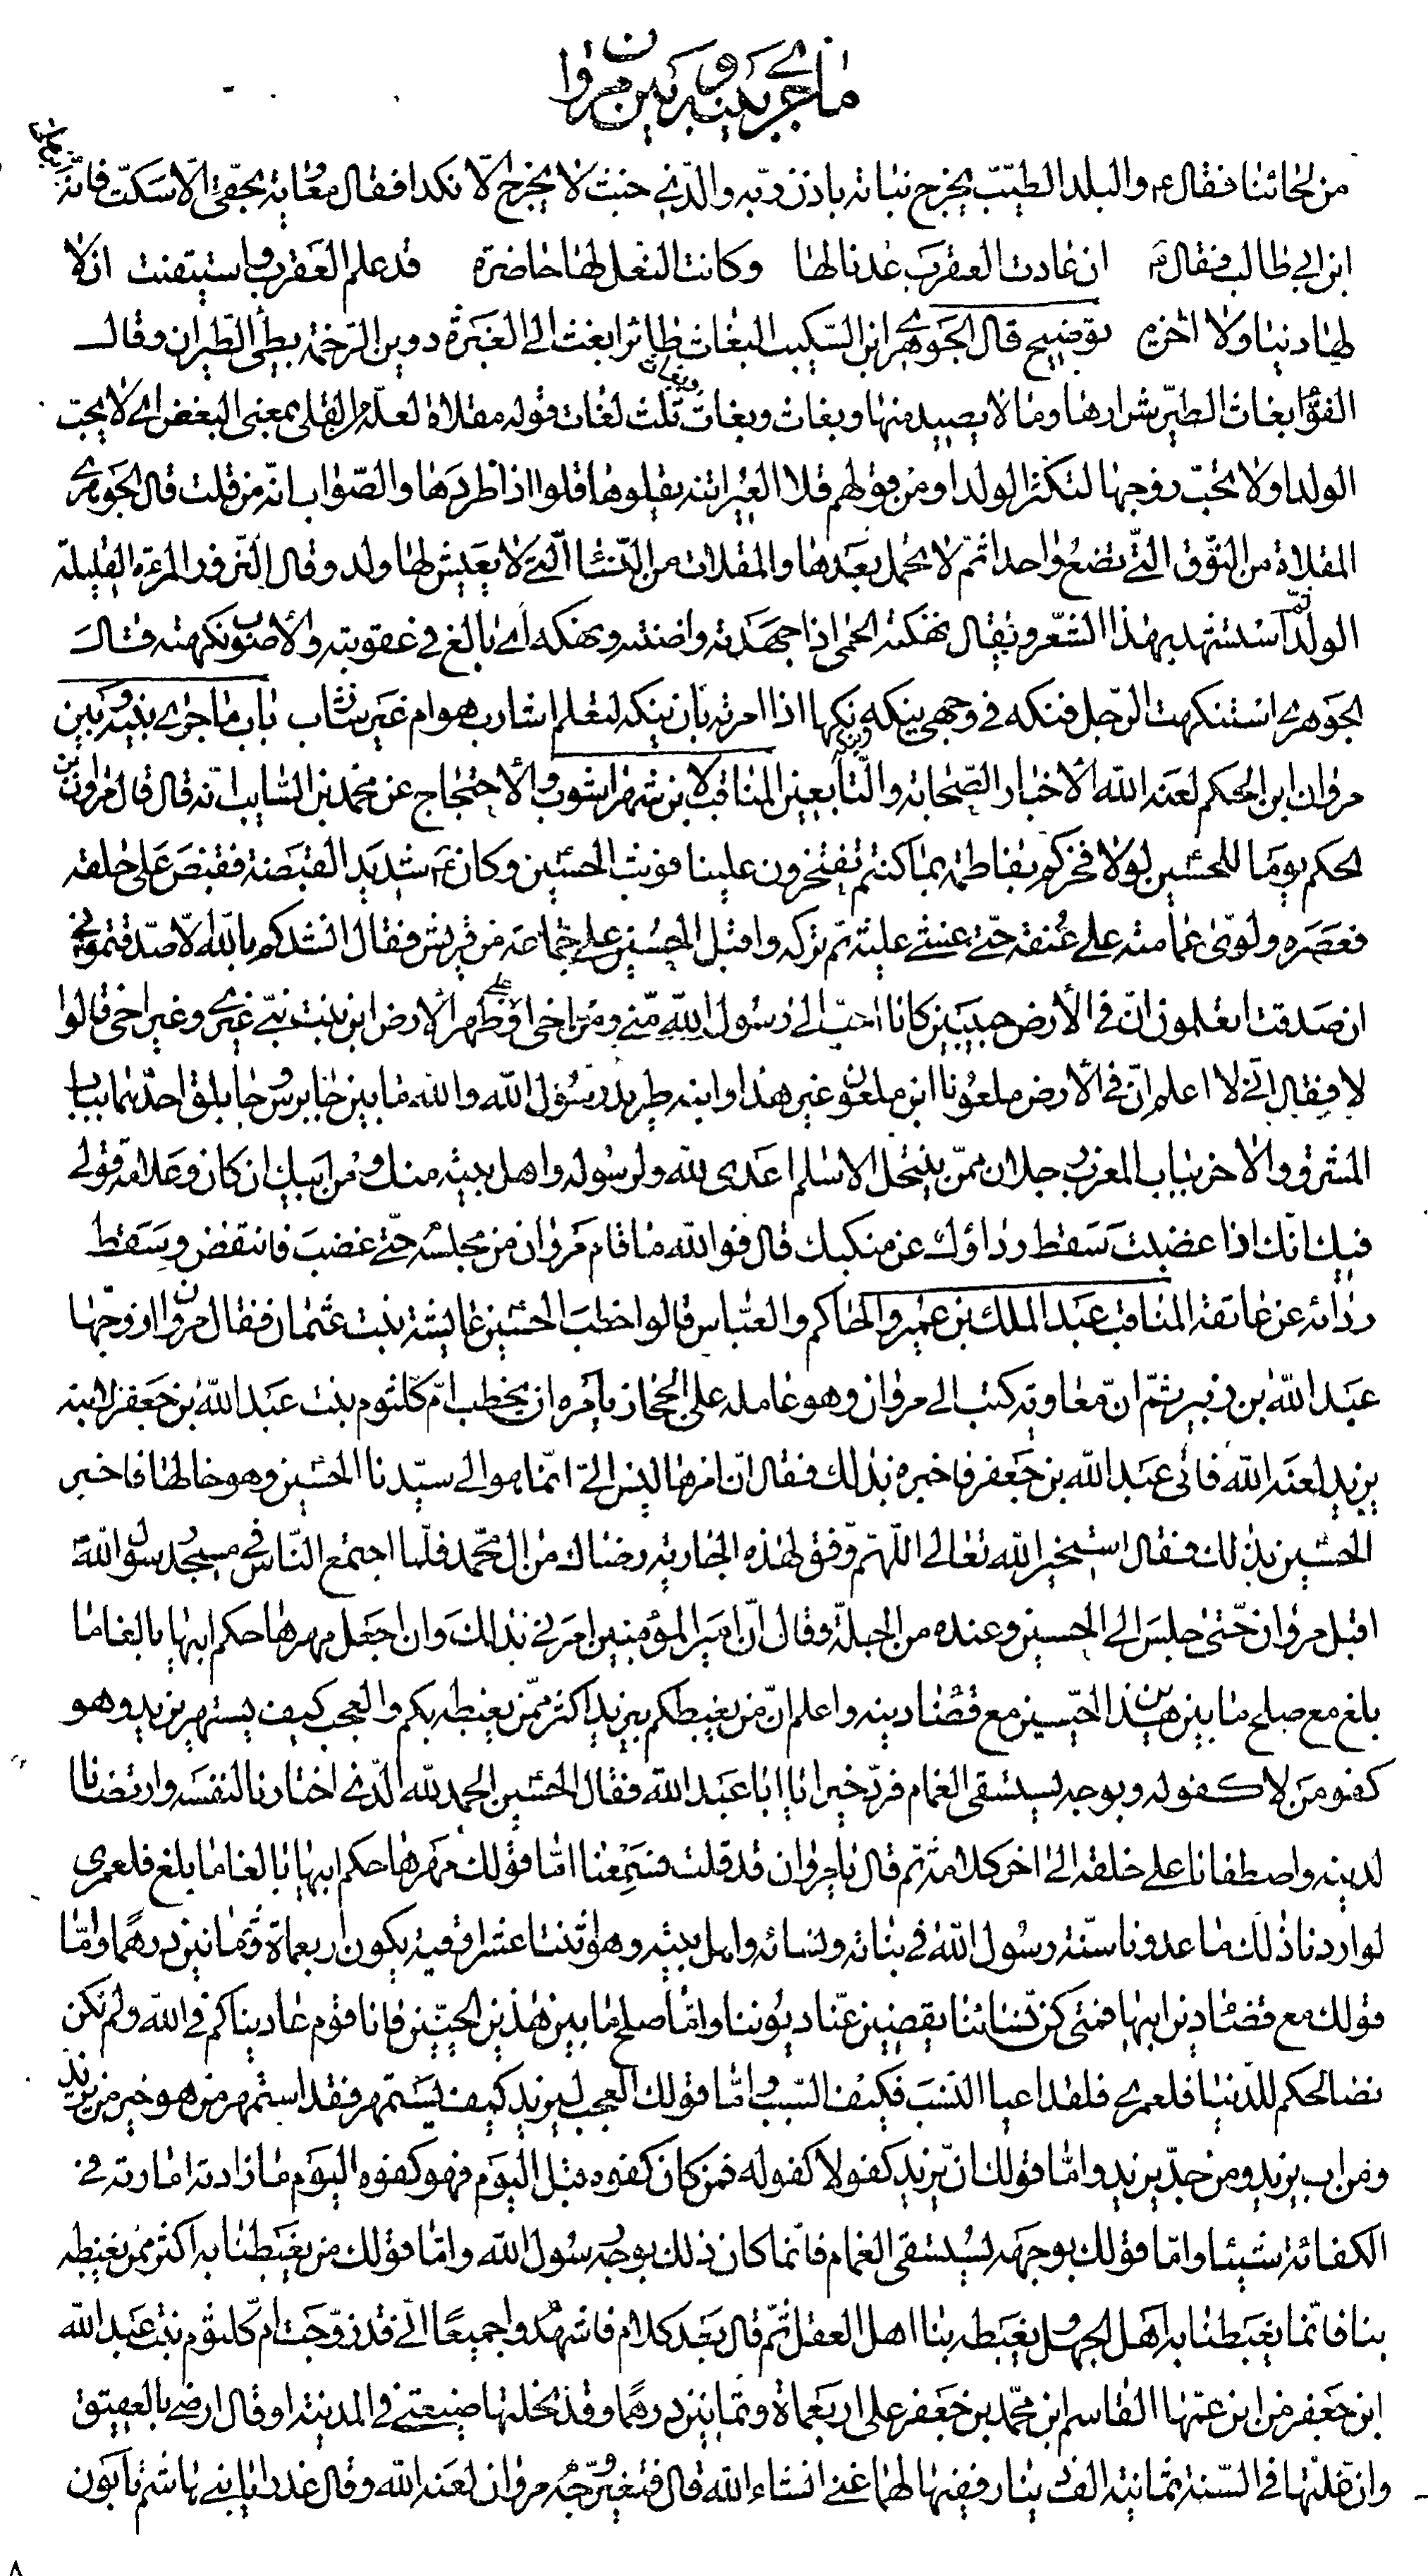 ما جرى بينه وبين مروان
من لحائنا فقال ع والبلد الطيب يخرج نباته باذن ربه والذي خبث لا يخرج الا نكدا فقال معاوية بحقي الا سكت فانه
ابن ابي طالب فقال ع ان عادت العقرب عدنا لها وكانت النعل لها حاضرة قد علم العقرب واستيقنت ان لا
لها دنيا ولا اخرة توضيح قال الجوهري ابن السكيت البغاث طائر ابغث الى الغبرة دوين الرخمة بطيء الطيران وقال
الفراء بغاث الطير شرارها وما لا يصيد منها وبغاث وبغاث وبغاث ثلث لغات قوله مقلاة لعله من القلى بمعنى البغض اي لا يحب
الولد او لا تحب زوجها لتكثر الولد او من قولهم قلا العير اتنه يقلوها قلوا اذا طردها والصواب انه من قلت قال الجوهري
المقلاة من النوق التي تضع واحدا ثم لا تحمل بعدها والمقلات من النساء التي لا يعيش لها ولد وقال النزور المرءة القليلة
الولد ثم استشهد بهذا الشعر ويقال نهكته الحمى اذا جهدته واضنته ونهكه اي بالغ في عقوبته والاصوب نكهته قال
الجوهري استنكهت الرجل فنكه في وجهي ينكه وينكه نكها اذا امرته بان ينكه لتعلم اشارب هو ام غير شارب باب ما جرى بينه وبين
مروان ابن الحكم لعنه الله الاخبار الصحابة والتابعين المناقب لابن شهراشوب والاحتجاج عن محمد بن السايب انه قال قال مروان بن
الحكم يوما للحسين لولا فخركم بفاطمة بما كنتم تفتخرون علينا فوثب الحسين وكان ع شديد القبضة فقبض على حلقه
فعصره ولوى عمامته على عنقه حتى غشي عليه ثم تركه واقبل الحسين على جماعة من قريش فقال انشدكم بالله الا صدقتموني
ان صدقت اتعلمون ان في الارض حبيبين كانا احب الى رسول الله مني ومن اخي او على ظهر الارض ابن بنت نبي غيري وغير اخي قالوا
لا فقال اني لا اعلم ان في الارض ملعونا ابن ملعون غير هذا وابنه طريد رسول الله والله ما بين جابرس وجابلق احدهما بباب
المشرق والاخر بباب المغرب رجلان ممن ينتحل الاسلام اعدى لله ولرسوله واهل بيته منك ومن ابيك ان كان وعلامة قولي
فيك انك اذا غضبت سقط رداؤك عن منكبك قال فوالله ما قام مروان من مجلسه حتى غضب فانتفض وسقط
ردائه عن عاتقه المناقب عبد الملك بن عمير والحاكم والعباس قالوا خطب الحسين عايشة بنت عثمان فقال مروان ازوجها
عبد الله بن زبير ثم ان معاوية كتب الى مروان وهو عامله على الحجاز يامره ان يخطب ام كلثوم بنت عبد الله بن جعفر لابنه
يزيد لعنه الله فاتى عبد الله بن جعفر فاخبره بذلك فقال ان امرها ليس الي انما هو الى سيدنا الحسين وهو خالها فاخبر
الحسين بذلك فقال استخير الله تعالى اللهم وفق لهذه الجارية رضاك من ال محمد فلما اجتمع الناس في مسجد رسول الله
اقبل مروان حتى جلس الى الحسين وعنده من الجلة وقال ان امير المؤمنين امرني بذلك وان اجعل مهرها حكم ابيها بالغا ما
بلغ مع صلح ما بين هذين الحيين مع قضاء دينه واعلم ان من يغبطكم بيزيد اكثر ممن يغبطه بكم والعجب كيف يستمهر يزيد وهو
كفو من لا كفو له وبوجهه يستسقى الغمام فرد خيرا يا ابا عبد الله فقال الحسين الحمد لله الذي اختارنا لنفسه وارتضانا
لدينه واصطفانا على خلقه الى اخر كلامه ثم قال يا مروان قد قلت فسمعنا اما قولك مهرها حكم ابيها بالغا ما بلغ فلعمري
لو اردنا ذلك ما عدونا سنة رسول الله في بناته ونسائه واهل بيته وهو ثنتا عشر اوقية يكون اربعماة وثمانين درهما واما
قولك مع قضاء دين ابيها فمتى كن نسائنا يقضين عنا ديوننا واما صلح ما بين هذين الحيين فانا قوم عاديناكم في الله ولم نكن
نصالحكم للدنيا فلعمري فلقد اعيا النسب فكيف السبب واما قولك العجب ليزيد كيف يستمهر فقد استمهر من هو خير من يزيد
ومن اب يزيد ومن جد يزيد واما قولك ان يزيد كفو لا كفو له فمن كان كفوه قبل اليوم فهو كفوه اليوم ما زادته امارته في
الكفائة شيئا واما قولك بوجهه يستسقى الغمام فانما كان ذلك بوجه رسول الله واما قولك من يغبطنا به اكثر ممن يغبطه
بنا فانما يغبطنا به اهل الجهل ويغبطه بنا اهل العقل ثم قال بعد كلام فاشهدوا جميعا اني قد زوجت ام كلثوم بنت عبد الله
ابن جعفر من ابن عمها القاسم ابن محمد بن جعفر على اربعماة وثمانين درهما وقد نحلتها ضيعتي في المدينة او قال ارضي بالعقيق
وان غلتها في السنة ثمانية الف دينار ففيها لهما غنى انشاء الله قال فتغير وجه مروان لعنه الله وقال غدرا يا بني هاشم تابون